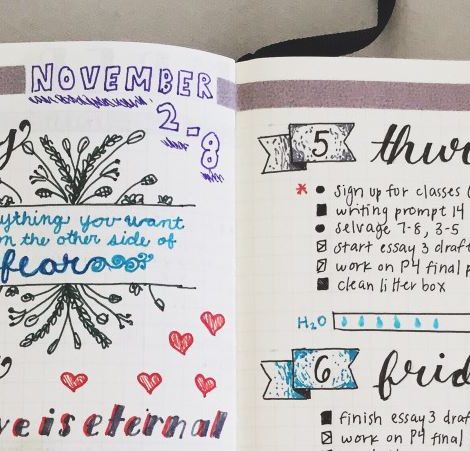 NOVEMBER
2-8
ything you want
n the other side of
fear
ve is eternal
5 thur
sign up for classes
writing prompt 14
selvage 7-8, 3-5
start essay 3 draft
work on P4 final p
clean litter box
H2O
6 frid
finish essay 3 draf
work on P4 final